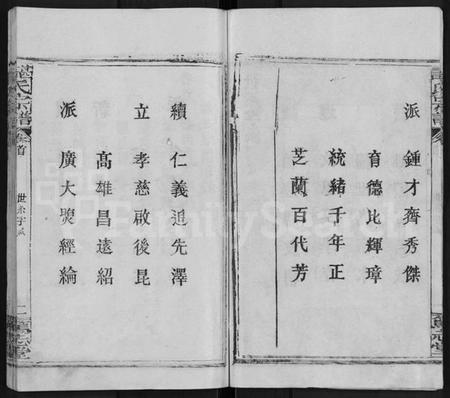 派 鍾才齊秀傑
育德比輝璋
統緒千年正
芝蘭百代芳
續 仁義追先澤
立 孝慈啟後昆
高雄昌遠紹
派 廣大煥經綸
氏宗譜
卷首
二
FamilySearch